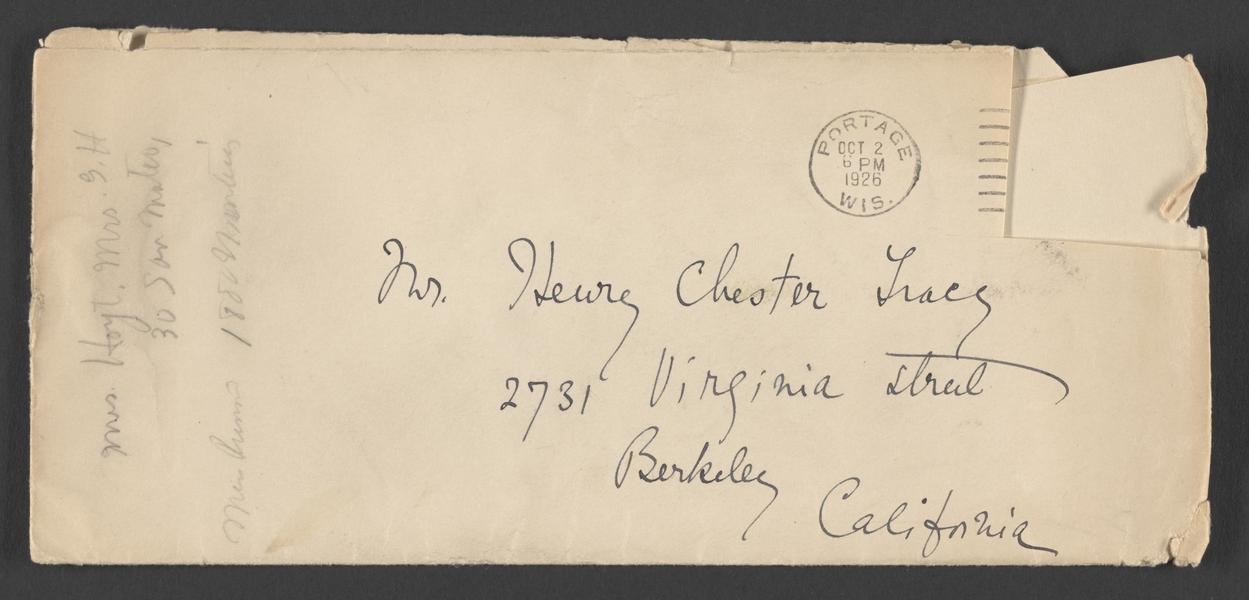 PORTAGE
OCT 2
6 PM
1926
WIS.
Mr. Henry Chester Tracy
2731 Virginia street
Berkeley
California
Mrs. Hoyt, Mrs.
30 San Mateo,